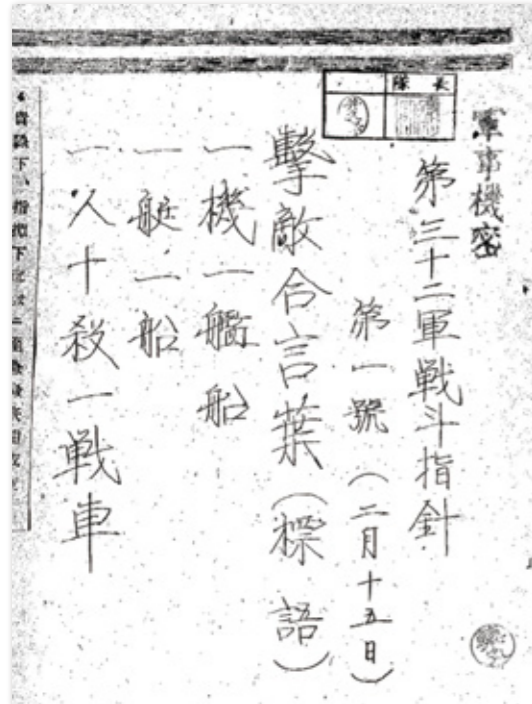 軍事機密
第三十二軍戦斗指針
第一號(二月十五日)
擊敵合言葉(標語)
一機一艦船
一艇一船
一人十殺一戦車
隊長